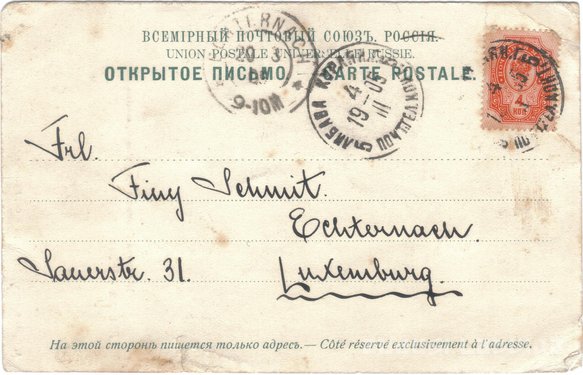 ВСЕМІРНЫЙ ПОЧТОВЫЙ СОЮЗЪ. РОССІЯ.
UNION POSTALE UNIVERSELLE. RUSSIE.
ОТКРЫТОЕ ПИСЬМО — CARTE POSTALE.
9-10N
4
19 03
III
4
КОП.
Frl.
Finy Schmit.
Echternach.
Sauerstr. 31. Luxemburg.
На этой сторонѣ пишется только адресъ.— Côté réservé exclusivement à l'adresse.